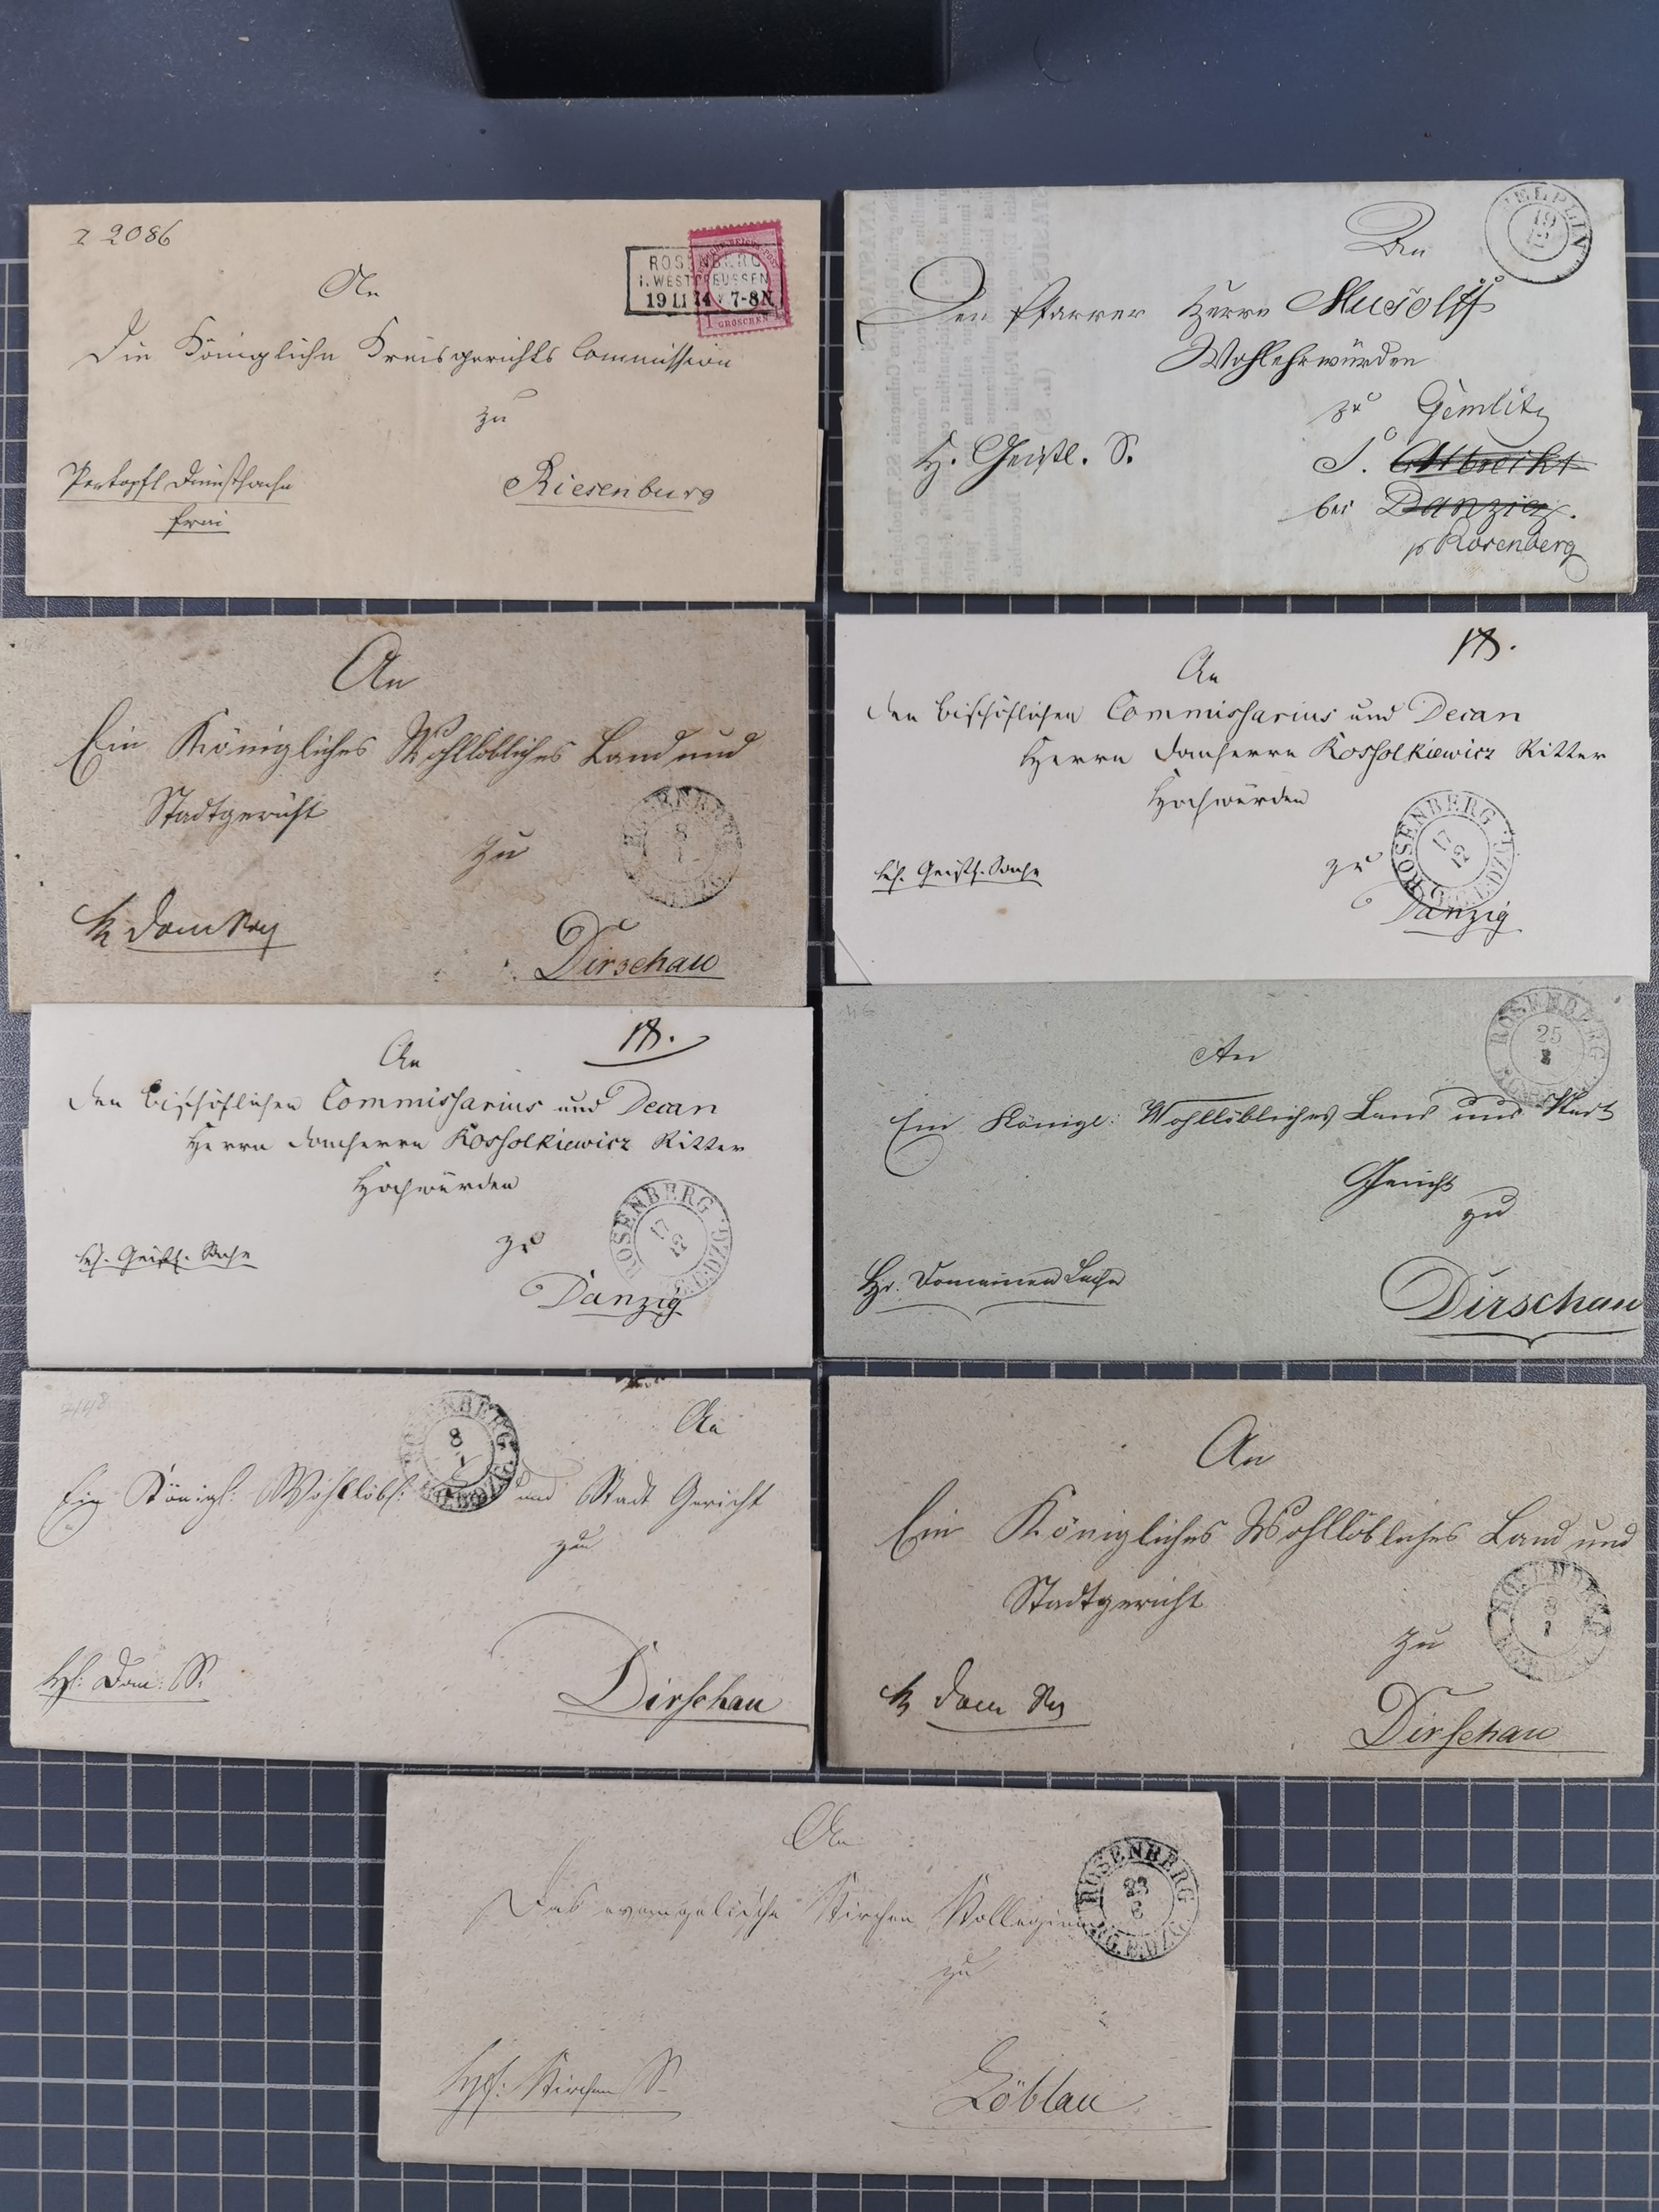 2086
An
Die Königliche Kreisgerichts Commission
zu
Riesenburg
Portopfl. Dienstsache
frei
ROSENBERG
i. WESTPREUSSEN
19 11 74 7-8N
1 GROSCHEN 1
PELPLIN
19
12
An
Den Pfarrer Herrn
Wohlehrwürden
zu Gemlitz
H. Geistl. S.
S. Albrecht
bei Danzig.
p Rosenberg
An
Ein Königliches Wohllöbliches Land und
Stadtgericht
zu
Dirschau
Dom
ROSENBERG
8
1
An
den bischöflichen Commissarius und Decan
Herrn Domherrn Kossolkiewicz Ritter
Hochwürden
zu
Danzig
Geistl. Sache
ROSENBERG
RG.B.DZG.
17
12
An
den bischöflichen Commissarius und Decan
Herrn Domherrn Kossolkiewicz Ritter
Hochwürden
zu
Danzig
Geistl. Sache
ROSENBERG
RG.B.DZG.
17
12
An
Ein Königl: Wohllöbliches Land und Stadt
Gericht
zu
Dirschau
Domainen Sache
ROSENBERG
25
An
Ein Königl: Wohllöbl: und Stadt Gericht
zu
Dirschau
Dom: S.
ROSENBERG
8
1
An
Ein Königliches Wohllöbliches Land und
Stadtgericht
zu
Dirschau
Dom
ROSENBERG
8
1
An
Das evangelische Kirchen Kollegium
zu
Löblau
Kirchen S.
ROSENBERG
RG.B.DZG.
23